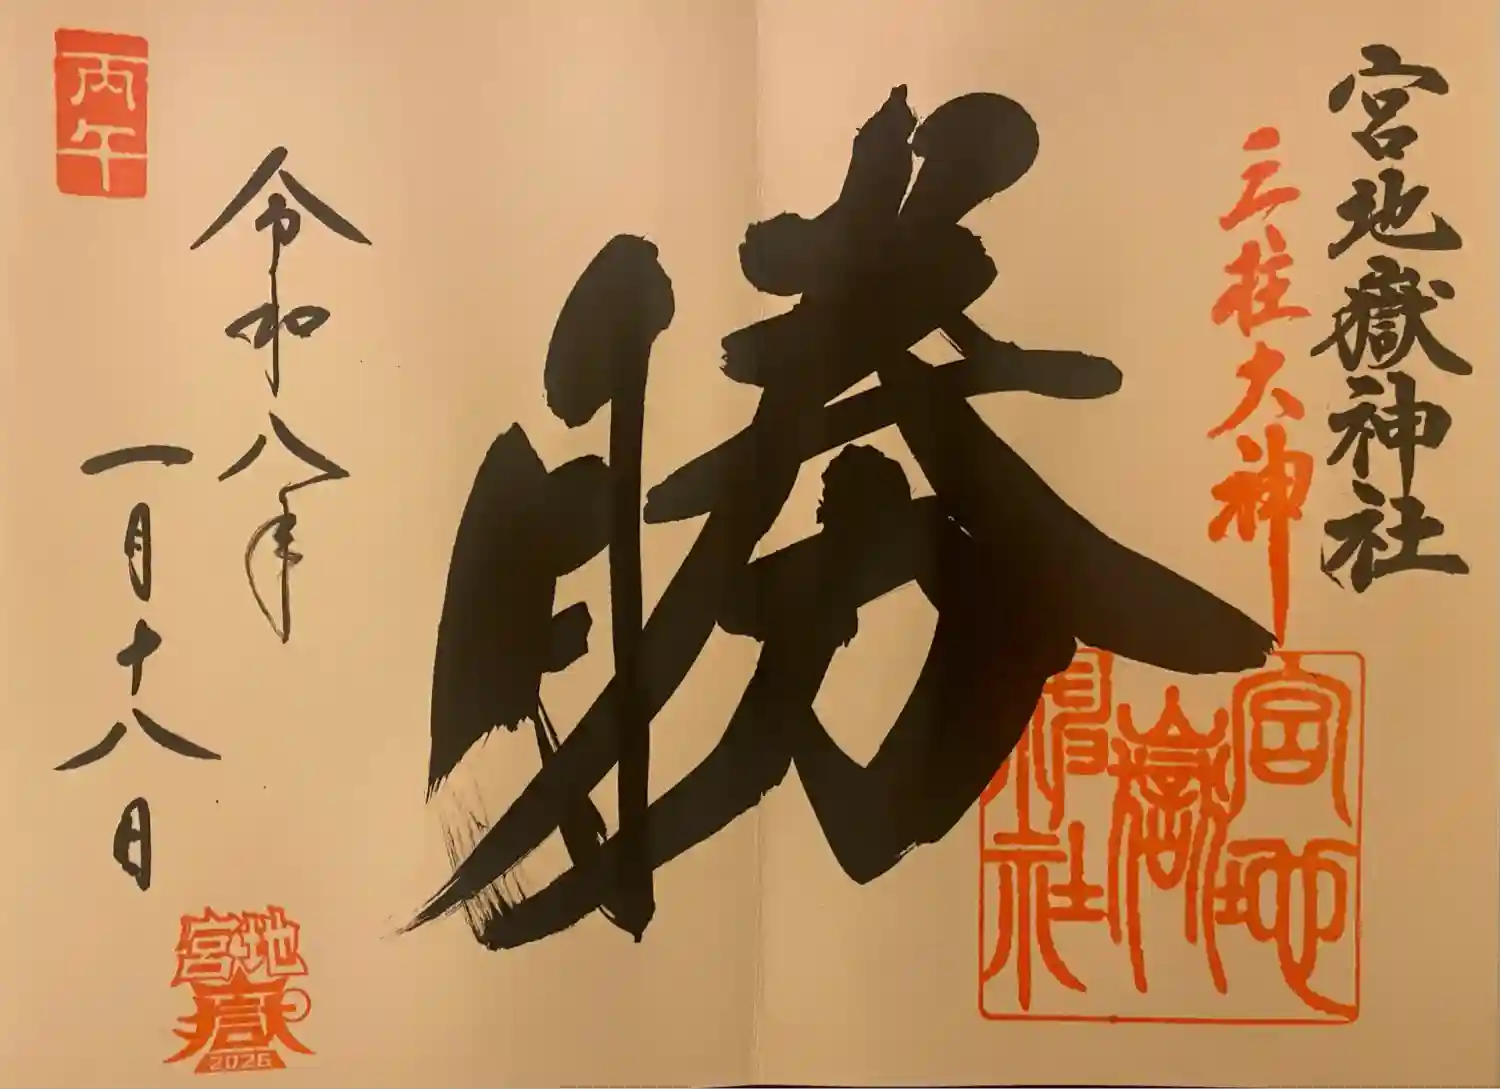 宮地嶽神社
三柱大神
宮地
嶽
神社
勝
令和八年
一月十八日
丙午
宮地
嶽
2026